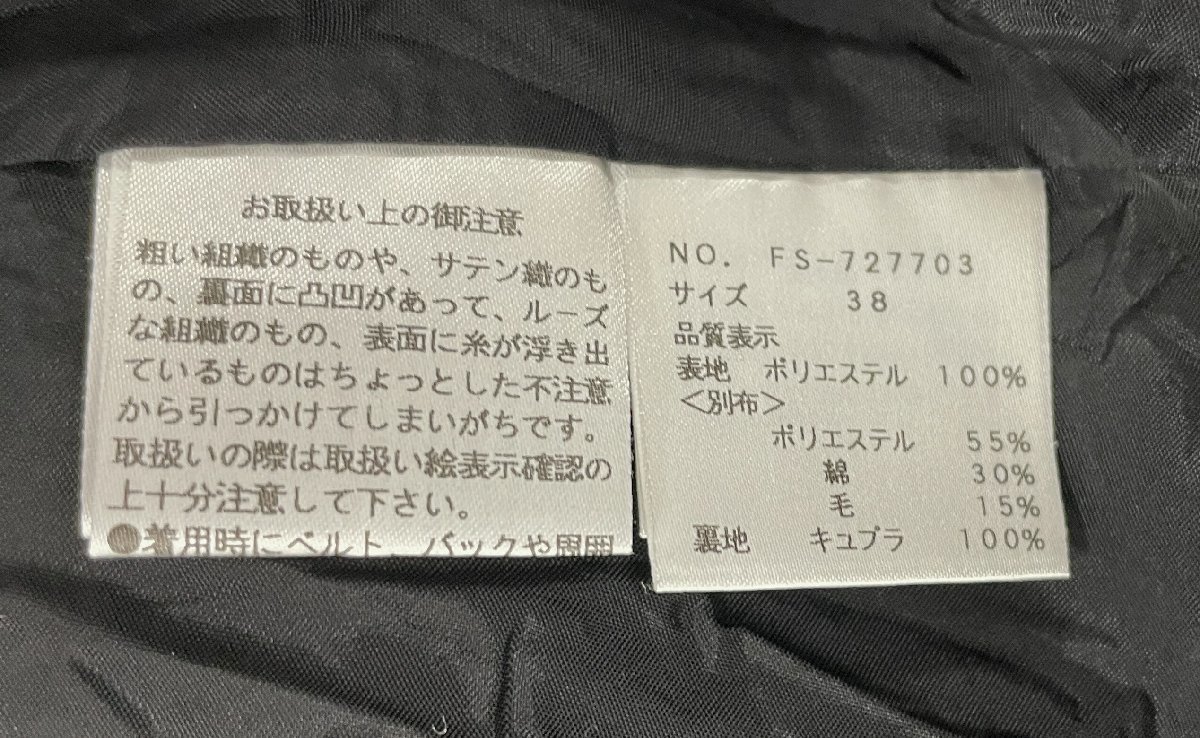 お取扱い上の御注意
粗い組織のものや、サテン織のも
の、裏面に凸凹があって、ルーズ
な組織のもの、表面に糸が浮き出
ているものはちょっとした不注意
から引っかけてしまいがちです。
取扱いの際は取扱い絵表示確認の
上十分注意して下さい。
●着用時にベルト、バックや周囲
NO. FS-727703
サイズ 38
品質表示
表地 ポリエステル 100%
<別布>
ポリエステル 55%
綿 30%
毛 15%
裏地 キュプラ 100%